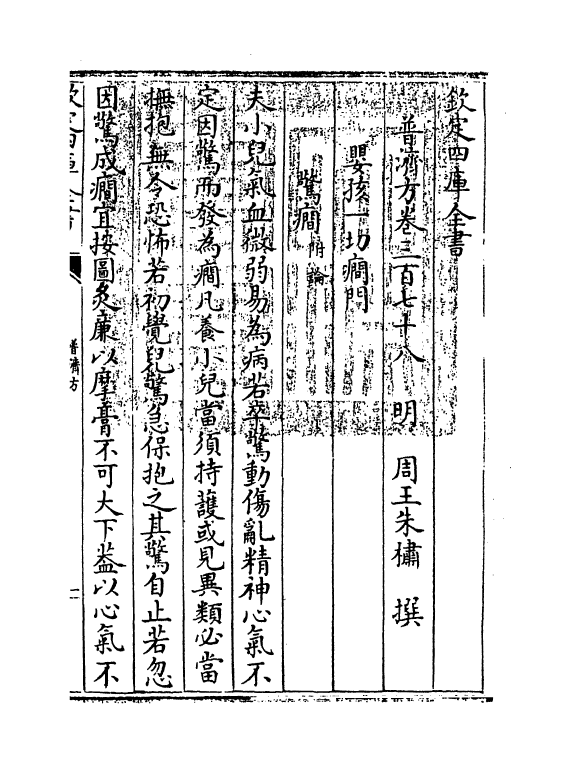 欽定四庫全書
普濟方卷三百七十八 明 周王朱橚 撰
嬰孩一切癇門
驚癇附論
夫小兒氣血微弱易為病若卒驚動傷亂精神心氣不
定因驚而發為癇凡養小兒當須持護或見異類必當
撫抱無令恐怖若初覺兒驚急保抱之其驚自止若忽
因驚成癇宜按圖灸廉以摩膏不可大下葢以心氣不
欽定四庫全書
普濟方
一